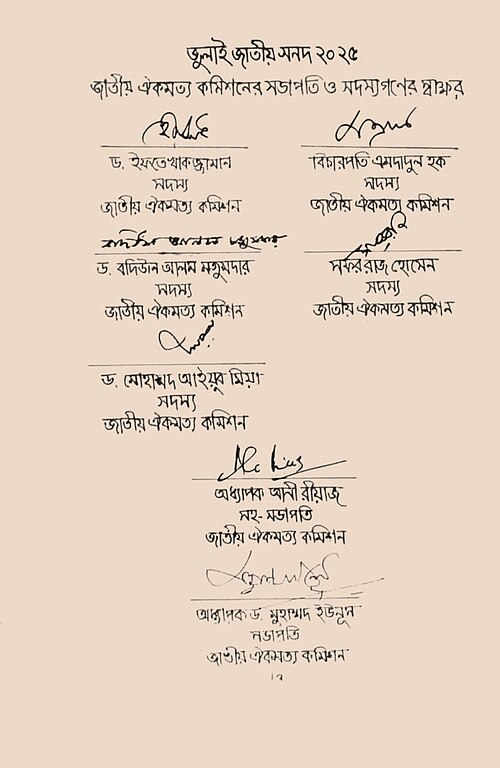 জুলাই জাতীয় সনদ ২০২৫
জাতীয় ঐকমত্য কমিশনের সভাপতি ও সদস্যগণের স্বাক্ষর
ড. ইফতেখারুজ্জামান
সদস্য
জাতীয় ঐকমত্য কমিশন
বিচারপতি এমদাদুল হক
সদস্য
জাতীয় ঐকমত্য কমিশন
বদিউল আলম মজুমদার
ড. বদিউল আলম মজুমদার
সদস্য
জাতীয় ঐকমত্য কমিশন
সফর রাজ হোসেন
সদস্য
জাতীয় ঐকমত্য কমিশন
ড. মোহাম্মদ আইয়ুব মিয়া
সদস্য
জাতীয় ঐকমত্য কমিশন
অধ্যাপক আলী রীয়াজ
সহ-সভাপতি
জাতীয় ঐকমত্য কমিশন
অধ্যাপক ড. মুহাম্মদ ইউনূস
সভাপতি
জাতীয় ঐকমত্য কমিশন